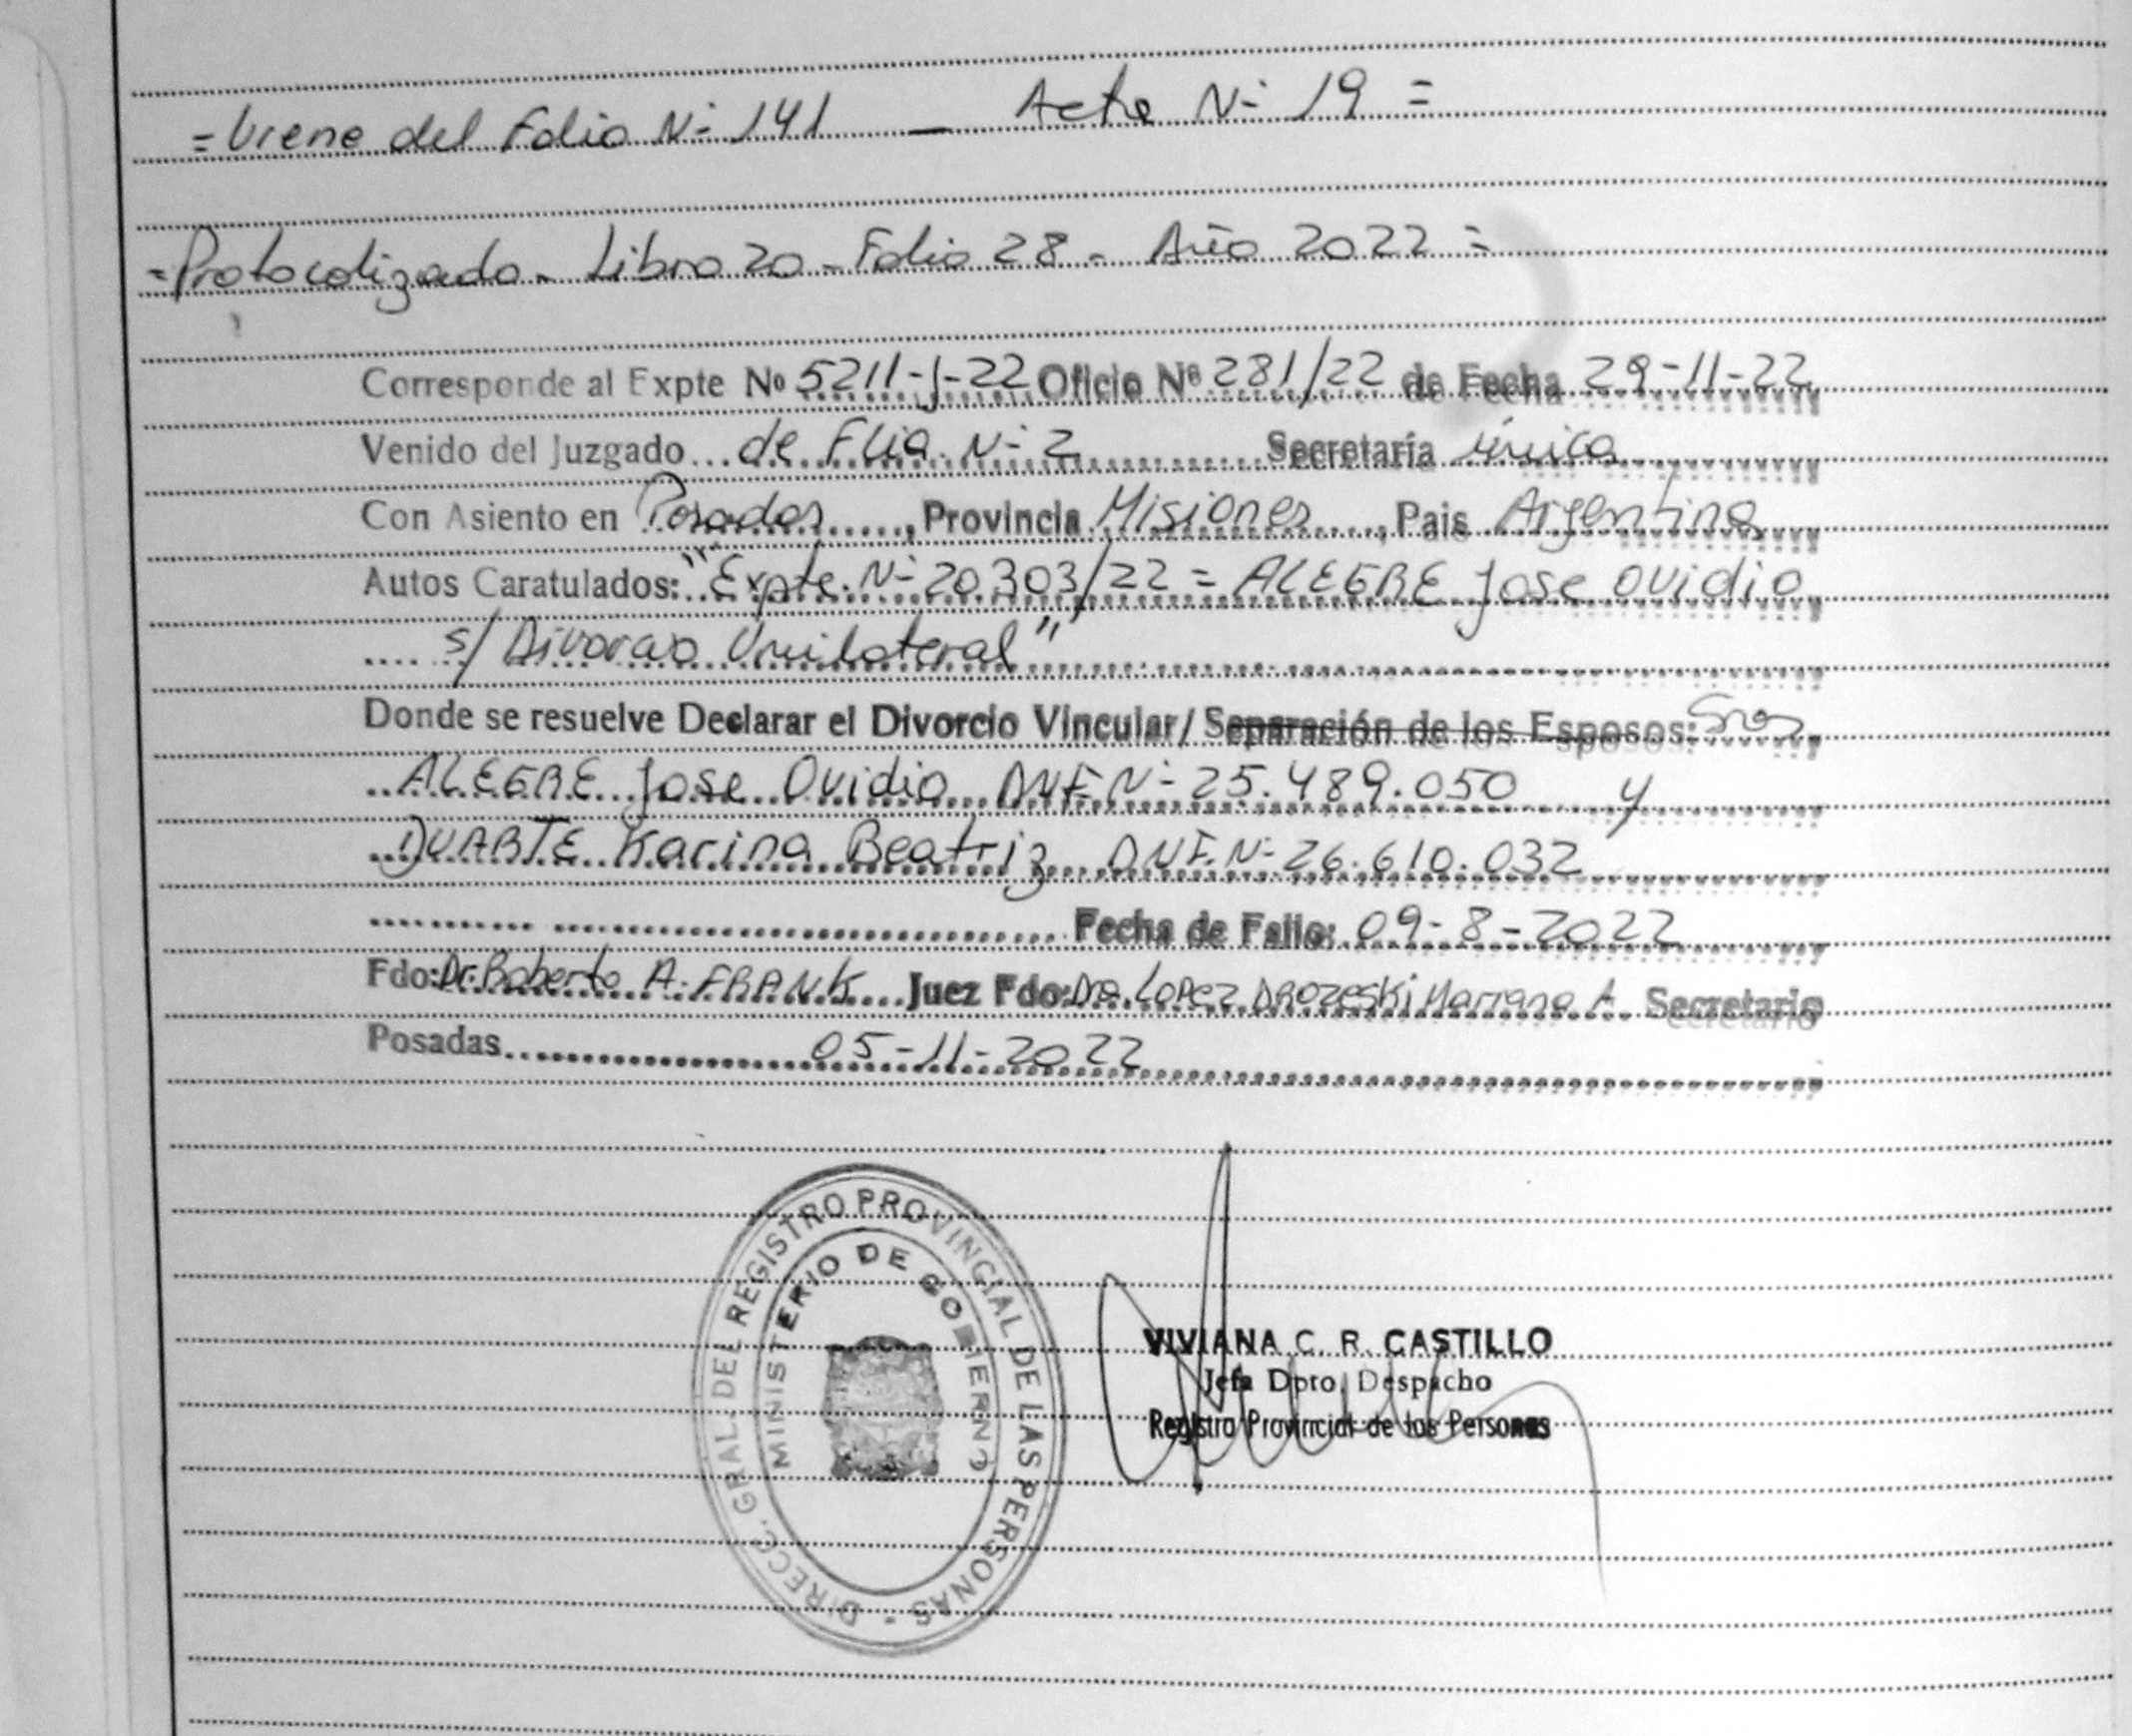 = Viene del Folio N- 141 — Acta N- 19 =
= Protocolizado - Libro 20 - Folio 28 - Año 2022 =
Corresponde al Expte Nº 5211-J-22 Oficio Nº 281/22 de Fecha 29-11-22
Venido del Juzgado de Flia. N- 2 Secretaría única
Con Asiento en Posadas, Provincia Misiones, Pais Argentina
Autos Caratulados: "Expte. N- 20303/22 = ALEGRE Jose Ovidio
s/ Divorcio Unilateral"
Donde se resuelve Declarar el Divorcio Vincular/ Separación de los Esposos: Sres.
ALEGRE Jose Ovidio DNI. N- 25.489.050 y
DUARTE Karina Beatriz DNI. N- 26.610.032
Fecha de Fallo: 09-8-2022
Fdo: Dr. Roberto A. FRANK Juez Fdo: Dra. Lopez Mariana A. Secretario
Posadas 05-11-2022
DIRECC. GRAL. DEL REGISTRO PROVINCIAL DE LAS PERSONAS -
MINISTERIO DE GOBIERNO
VIVIANA C. R. CASTILLO
Jefa Dpto. Despacho
Registro Provincial de las Personas